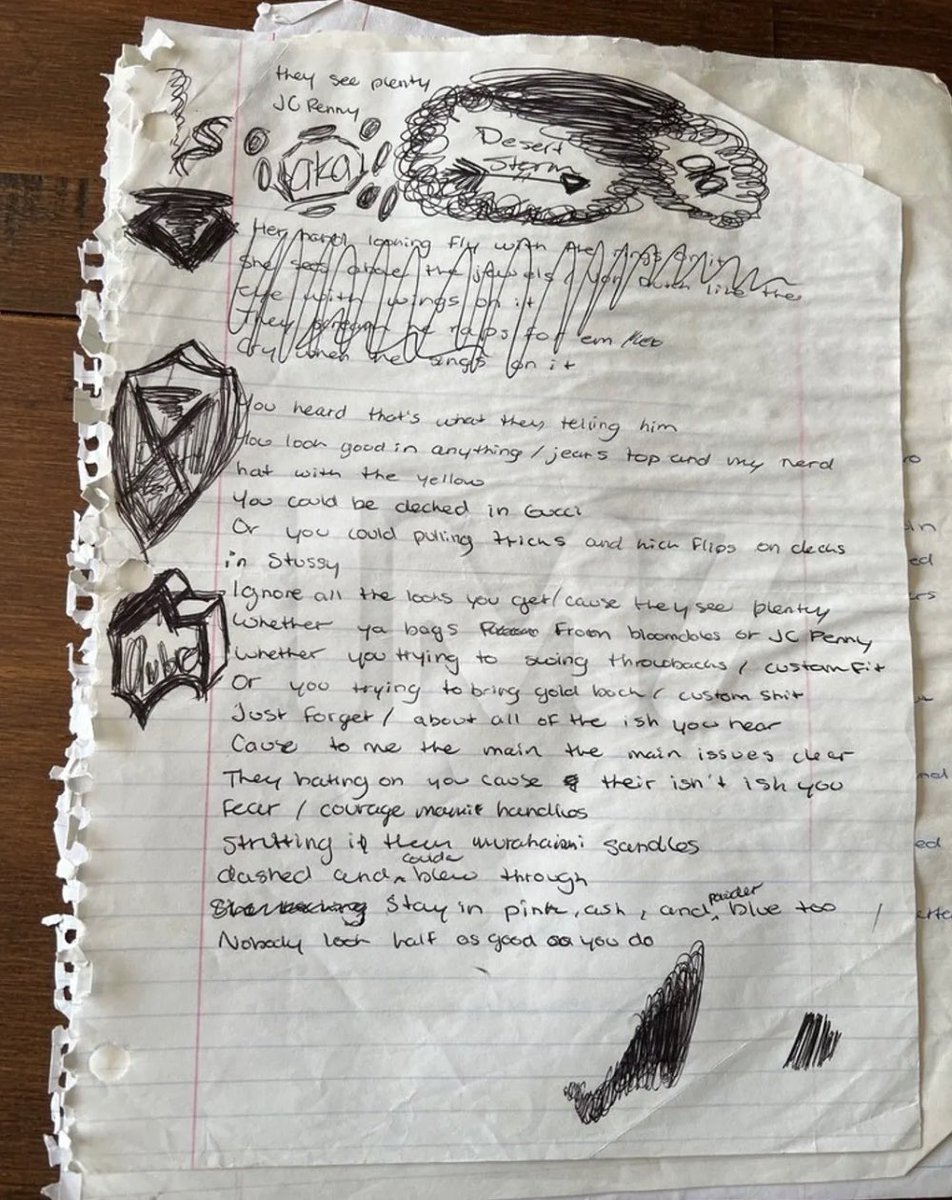 they see plenty
JC Penny
aka
Desert
Storm
Her hand looking fly with the rings on it
She sees above the jewels / you like the
with wings on it
They he raps for em
Cry when he sings on it
You heard that's what they telling him
You look good in anything / jeans top and my nerd
hat with the yellow
You could be decked in Gucci
Or you could pulling tricks and kick flips on decks
in Stussy
Ignore all the looks you get / cause they see plenty
Whether ya bags from bloomdoles or JC Penny
whether you trying to swing throwbacks / custom fit
Or you trying to bring gold back / custom shit
Just forget / about all of the ish you hear
Cause to me the main the main issues clear
They hating on you cause their isn't ish you
fear / courage handles
Strutting in them sandles
dashed and coulda blew through
Stay in pink, ash, and powder blue too /
Nobody look half as good as you do